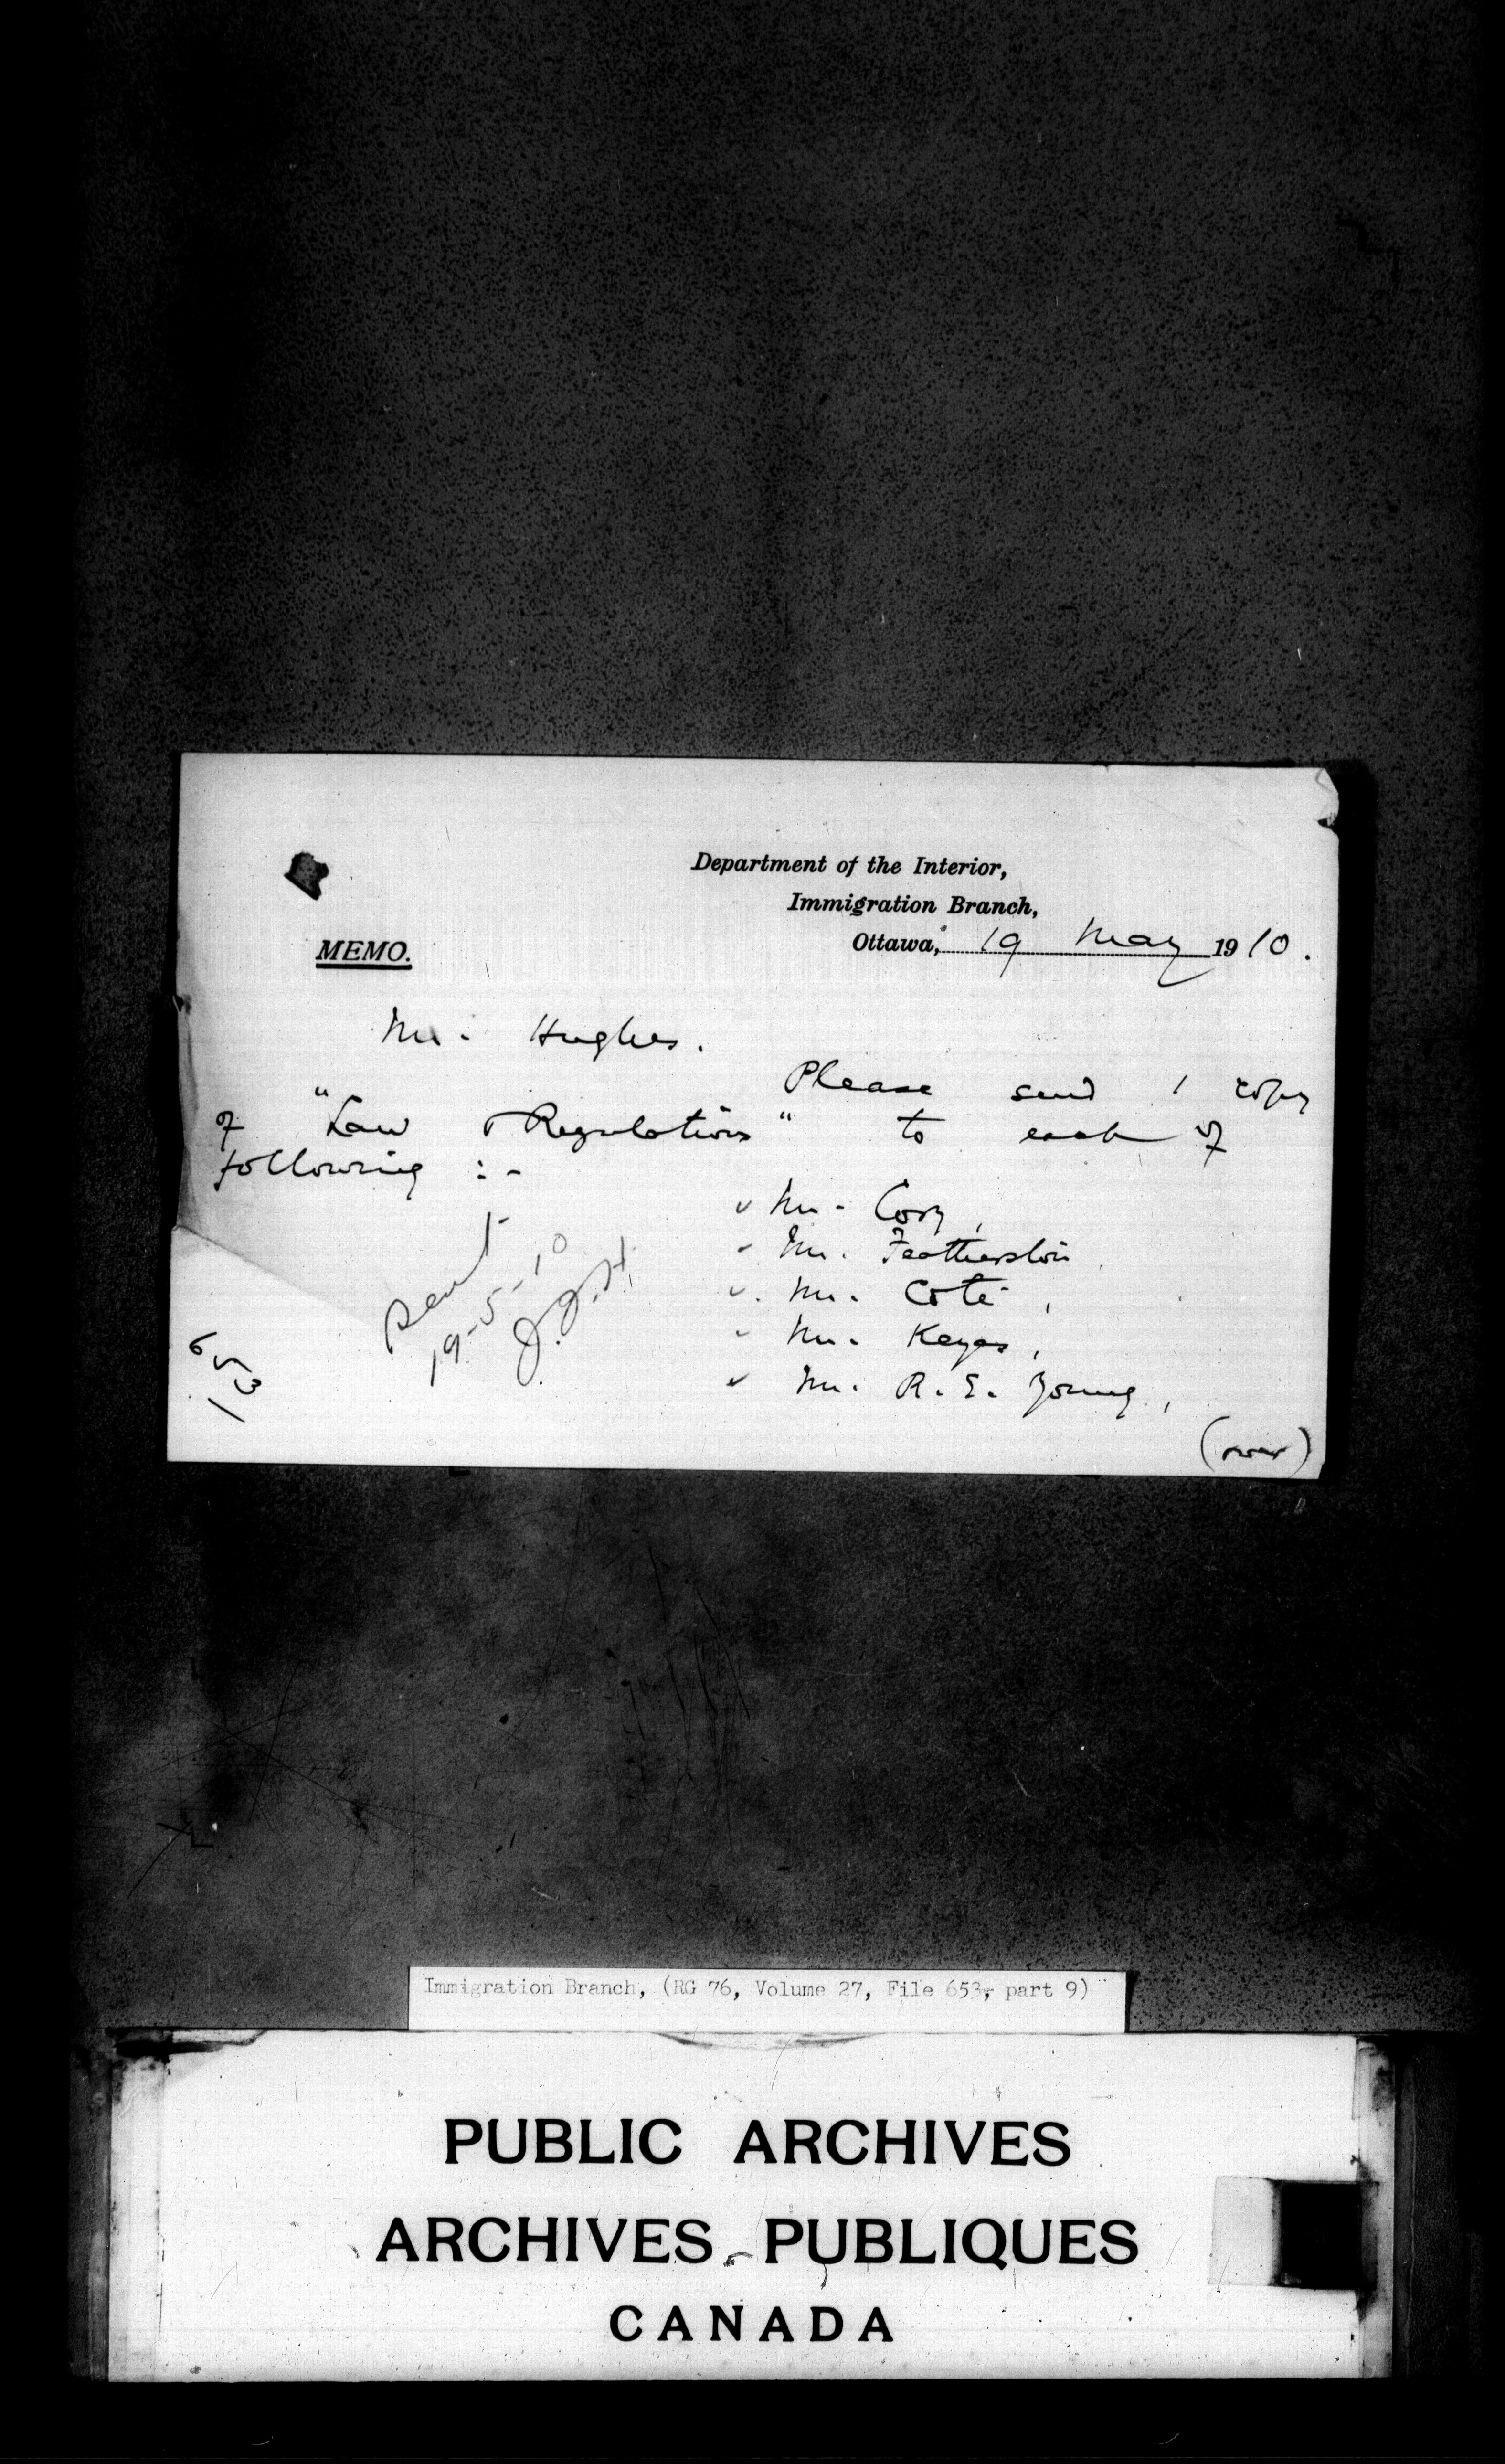 Department of the Interior,
Immigration Branch,
MEMO.
Ottawa, 19 May 1910.
Mr. Hughes.
Please send 1 copy
of "Law & Regulations" to each of
following :-
✓ Mr. Cory,
✓ Mr. Featherston,
✓ Mr. Coté,
✓ Mr. Keyes,
✓ Mr. R. E. Young,
(over)
Sent
19-5-10
J.J.H.
653
1
Immigration Branch, (RG 76, Volume 27, File 653, part 9)
PUBLIC ARCHIVES
ARCHIVES PUBLIQUES
CANADA